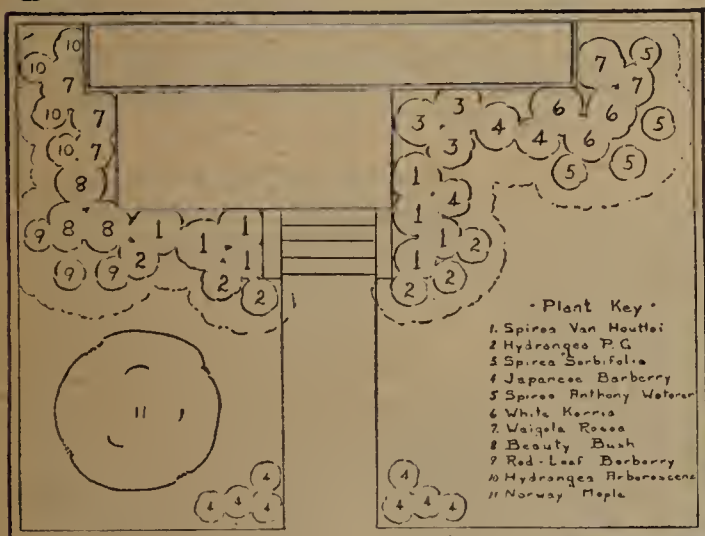 10 7 5
10 7 7
10 7 3 3 4 4 6 6 6 5
10 7 3 5 5
8 1 4
9 8 8 1 1 1 1 1 2
9 9 2 2 1 1 2
2 2
11
4 4
4 4 4 4 4 4
· Plant Key ·
1. Spirea Van Houttei
2 Hydrangea P.G
3 Spirea Sorbifolia
4 Japanese Barberry
5 Spirea Anthony Waterer
6 White Kerria
7. Weigela Rosea
8 Beauty Bush
9 Red-Leaf Barberry
10 Hydrangea Arborescens
11 Norway Maple